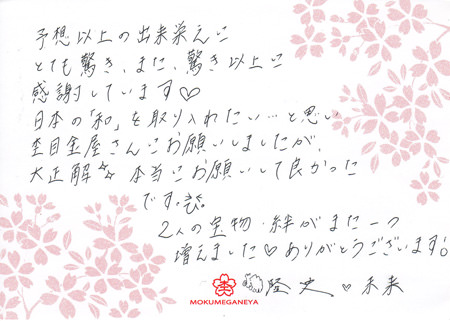 予想以上の出来栄えに
とても驚き、また、驚き以上に
感謝しています♡
日本の「和」を取り入れたい…と思い
杢目金屋さんにお願いしましたが、
大正解☆☆本当にお願いして良かった
です。
2人の宝物・絆がまた一つ
増えました♡ありがとうございます!
隆史♥未来
MOKUMEGANEYA